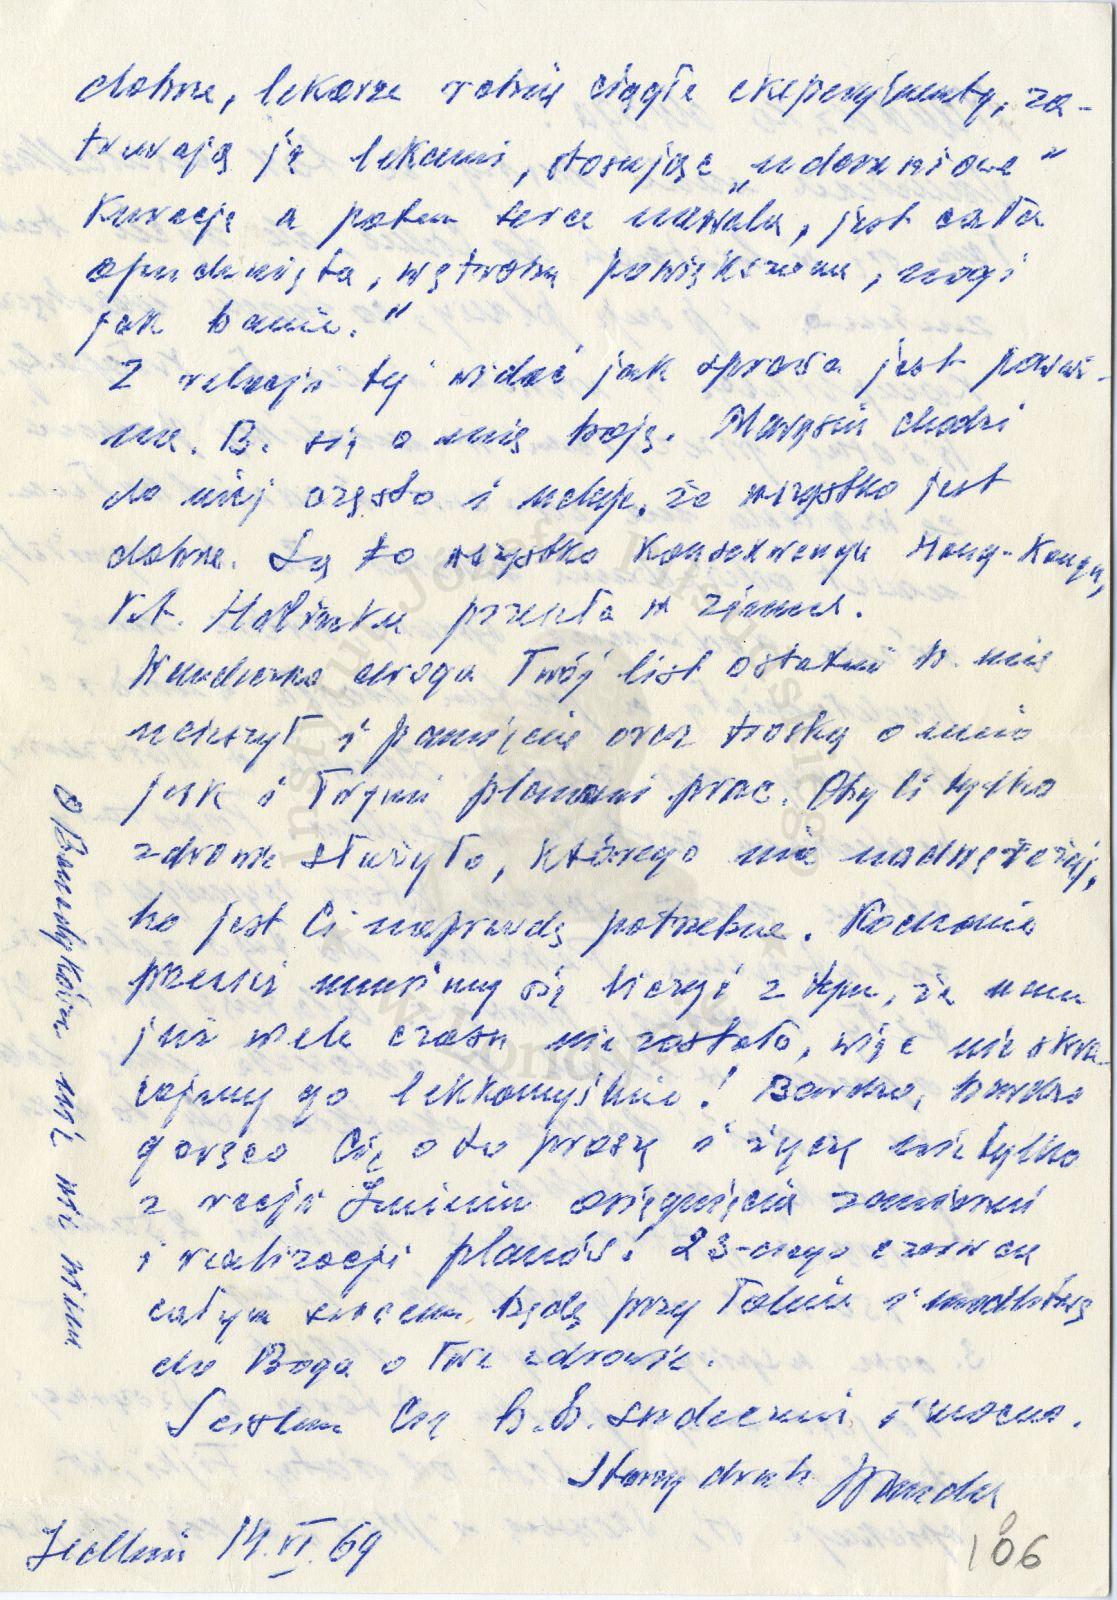 dobrze, lekarze robią ciągle eksperymenty, za-
truwają ją lekami, stosując „uderzeniowe”
kurację a potem serce nawala, jest cała
opuchnięta, wątroba powiększona, nogi
jak banie.”
Z relacji tej widać jak sprawa jest poważ-
na. B. się o nią boję. Marysia chodzi
do niej często i udaje, że wszystko jest
dobrze. Są to wszystko konsekwencje Hong-Kongu,
kt. Halinka przeszła w zimie.
Wandeczko droga Twój list ostatni b. mnie
ucieszył i pamięcią oraz troską o mnie
jak i Twymi planami prac. Oby Ci tylko
zdrowie służyło, którego nie nadwerężaj,
bo jest Ci naprawdę potrzebne. Kochanie
przecież musimy się liczyć z tym, że nam
już wiele czasu nie zostało, więc nie skra-
cajmy go lekkomyślnie! Bardzo, bardzo
gorąco Cię o to proszę i życzę nie tylko
z racji Imienin osiągnięcia zamierzeń
i realizacji planów! 23-ciego czerwca
całym sercem będę przy Tobie i modlitwą
do Boga o Twe zdrowie.
Ściskam Cię b. b. serdecznie i mocno.
Stary druh Wanda
14.VI.69
106
nic nie wiem
Instytut Józefa Piłsudskiego
w Londynie